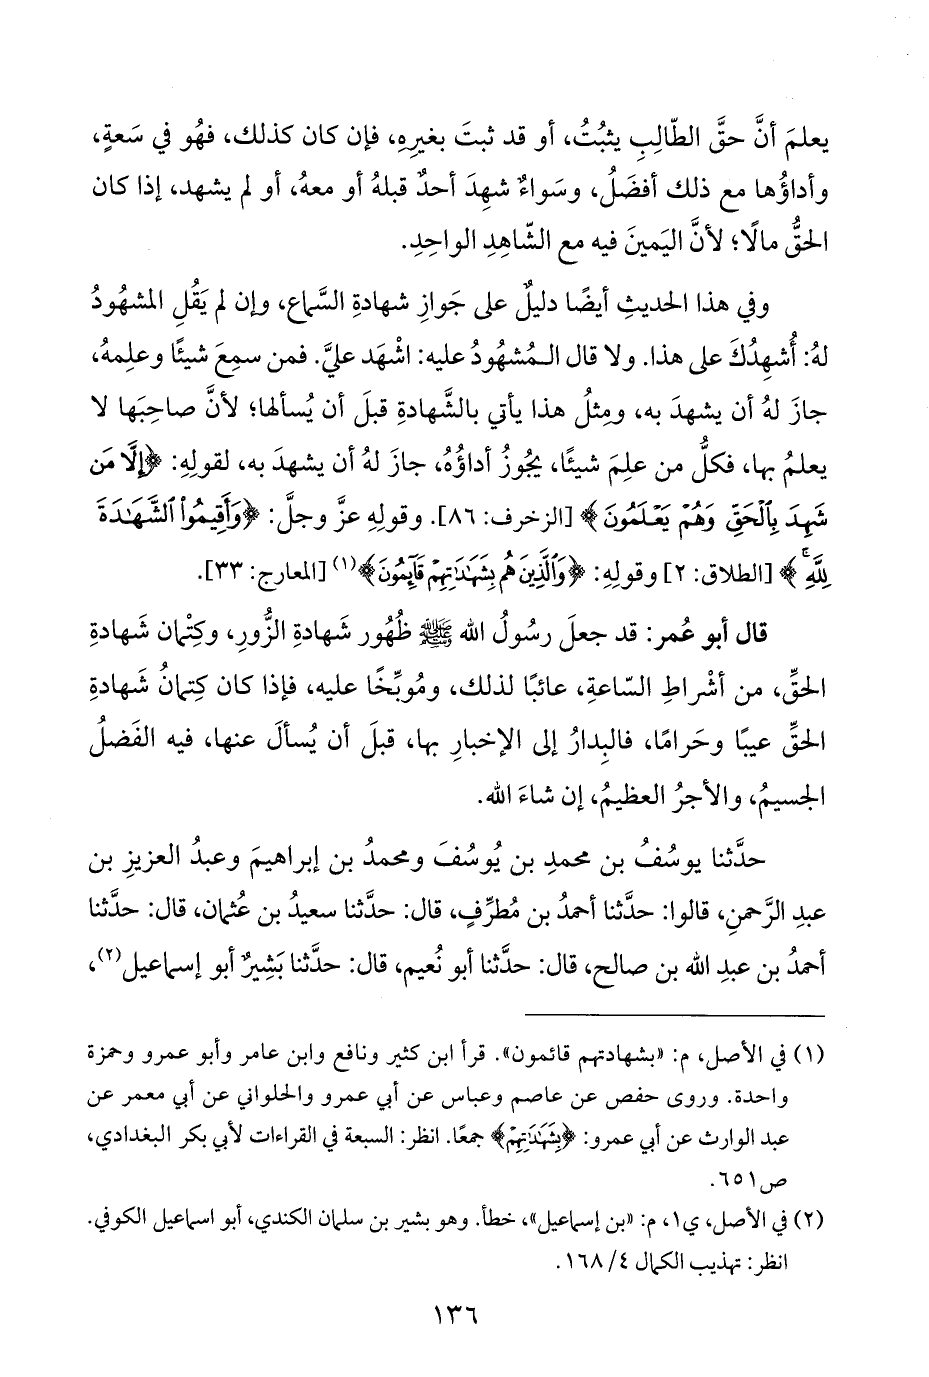 يعلمَ أنَّ حقَّ الطّالِبِ يثبُتُ، أو قد ثبتَ بغيرِهِ، فإن كان كذلك، فهُو في سَعةٍ،
وأداؤُها مع ذلك أفضَلُ، وسَواءٌ شهِدَ أحدٌ قبلهُ أو معهُ، أو لم يشهد، إذا كان
الحقُّ مالًا؛ لأنَّ اليَمينَ فيه مع الشّاهِدِ الواحِدِ.
وفي هذا الحديثِ أيضًا دليلٌ على جَوازِ شهادةِ السَّماع، وإن لم يَقُلِ المشهُودُ
لهُ: أُشهِدُكَ على هذا. ولا قال الـمُشهُودُ عليه: اشْهَد عليَّ. فمن سمِعَ شيئًا وعلِمهُ،
جازَ لهُ أن يشهدَ به، ومِثلُ هذا يأتي بالشَّهادةِ قبلَ أن يُسألها؛ لأنَّ صاحِبَها لا
يعلمُ بها، فكلُّ من علِمَ شيئًا، يجُوزُ أداؤُهُ، جازَ لهُ أن يشهدَ به، لقولِهِ: ﴿إِلَّا مَن
شَهِدَ بِٱلْحَقِّ وَهُمْ يَعْلَمُونَ﴾ [الزخرف: ٨٦]. وقولِهِ عزَّ وجلَّ: ﴿وَأَقِيمُوا۟ ٱلشَّهَـٰدَةَ
لِلَّهِ ۚ﴾ [الطلاق: ٢] وقولِهِ: ﴿وَٱلَّذِينَ هُم بِشَهَـٰدَٰتِهِمْ قَآئِمُونَ﴾(١) [المعارج: ٣٣].
قال أبو عُمر: قد جعلَ رسُولُ الله ﷺ ظُهُور شَهادةِ الزُّورِ، وكِتْمان شَهادةِ
الحقِّ، من أشْراطِ السّاعةِ، عائبًا لذلك، ومُوبِّخًا عليه، فإذا كان كِتمانُ شَهادةِ
الحقِّ عيبًا وحَرامًا، فالبِدارُ إلى الإخبارِ بها، قبلَ أن يُسألَ عنها، فيه الفَضلُ
الجسيمُ، والأجرُ العظيمُ، إن شاءَ الله.
حدَّثنا يوسُفُ بن محمدِ بن يُوسُفَ ومحمدُ بن إبراهيمَ وعبدُ العزيزِ بن
عبدِ الرَّحمنِ، قالوا: حدَّثنا أحمدُ بن مُطرِّفٍ، قال: حدَّثنا سعيدُ بن عُثمان، قال: حدَّثنا
أحمدُ بن عبدِ الله بن صالح، قال: حدَّثنا أبو نُعيم، قال: حدَّثنا بَشِيرٌ أبو إسماعيل(٢)،
(١) في الأصل، م: «بشهادتهم قائمون». قرأ ابن كثير ونافع وابن عامر وأبو عمرو وحمزة
واحدة. وروى حفص عن عاصم وعباس عن أبي عمرو والحلواني عن أبي معمر عن
عبد الوارث عن أبي عمرو: ﴿بِشَهَـٰدَٰتِهِمْ﴾ جمعًا. انظر: السبعة في القراءات لأبي بكر البغدادي،
ص٦٥١.
(٢) في الأصل، ي١، م: «بن إسماعيل»، خطأ. وهو بشير بن سلمان الكندي، أبو اسماعيل الكوفي.
انظر: تهذيب الكمال ٤/ ١٦٨.
١٣٦